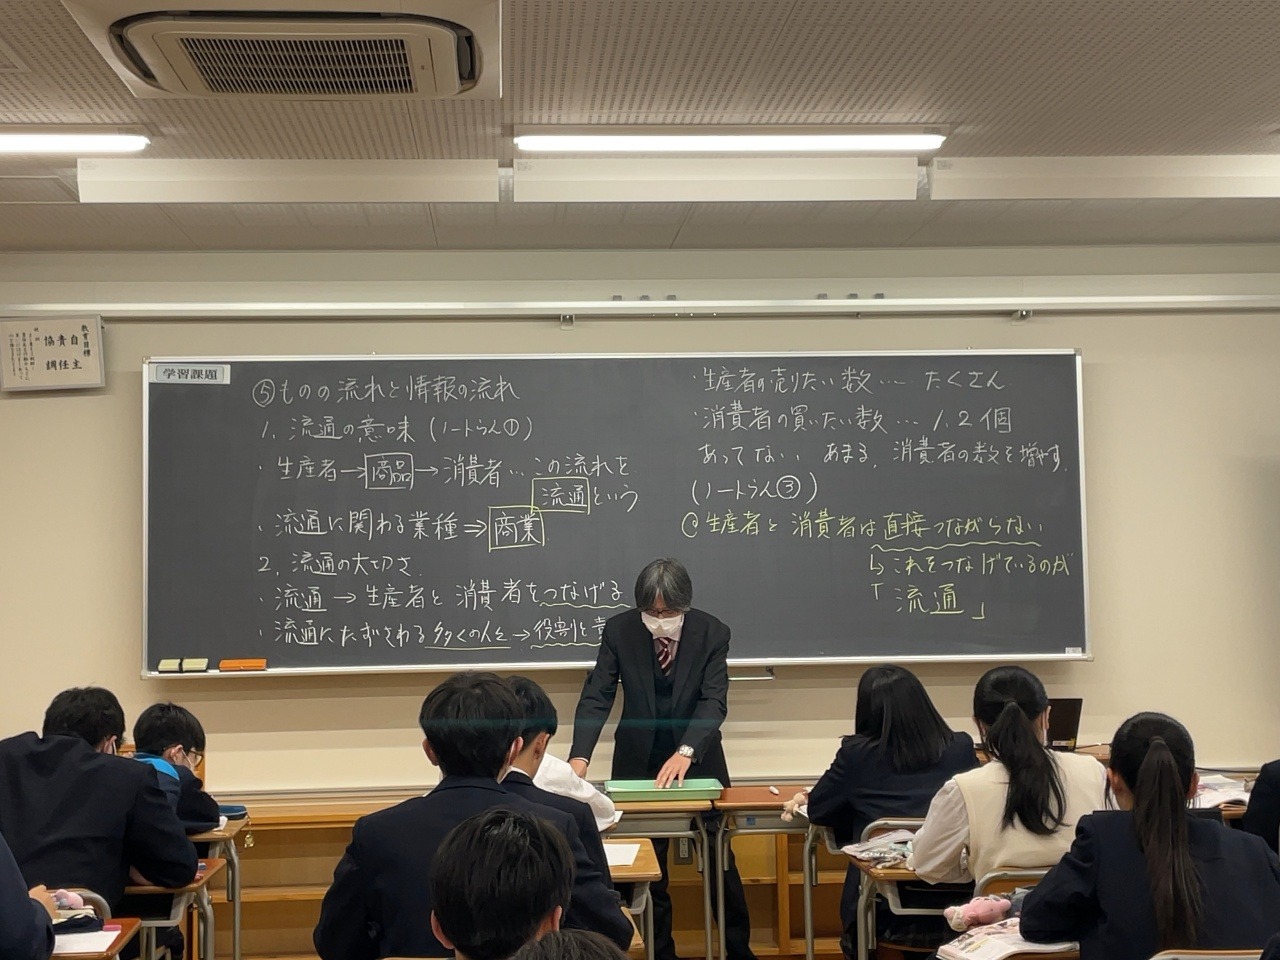 教育目標
自主
責任
協調
学習課題
⑤ものの流れと情報の流れ
1. 流通の意味 (ノートらん①)
・生産者→商品→消費者…この流れを
流通という
・流通に関わる業種⇒商業
2. 流通の大切さ
・流通→生産者と消費者をつなげる
・流通にたずさわる多くの人々→役割と責
・生産者の売りたい数…たくさん
・消費者の買いたい数…1、2個
あってない あまる、消費者の数を増やす。
(ノートらん③)
◎生産者と消費者は直接つながらない
↳これをつなげているのが
「流通」